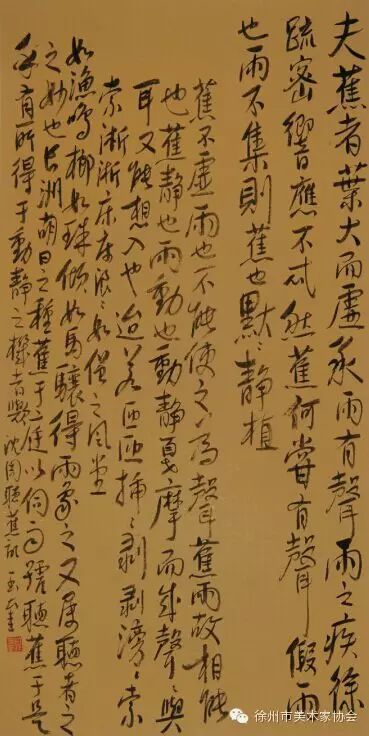 夫蕉者葉大而虛承雨有聲雨之疾徐
疏密響應不忒然蕉何嘗有聲假雨
也雨不集則蕉也默〻靜植
蕉不虛雨也不能使之為聲蕉雨故相能
也蕉靜也雨動也動靜戛摩而成聲〻與
耳又能想入也迨若匝匝插〻剥剥滂〻索
索淅淅床床浪〻如僧之風堂
如漁鳴榔如珠傾如馬驤得而象之又屬聽者之
之妙也長洲胡日之種蕉于庭以伺雨號聽蕉于是
乎有所得于動靜之機者歟沈周聽蕉記
徐州市美术家协会